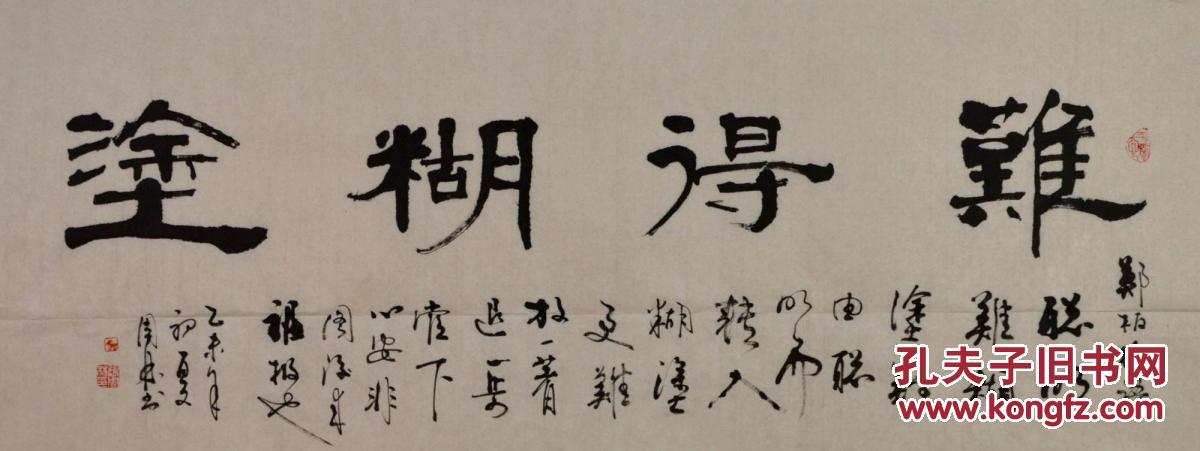 難得糊塗
鄭板
聰
難
塗
由聰
明而
轉入
糊塗
更難
放一著
退一步
當下
心安非
圖後來
報也
乙未年
初夏
周書
孔夫子旧书网
www.kongfz.com